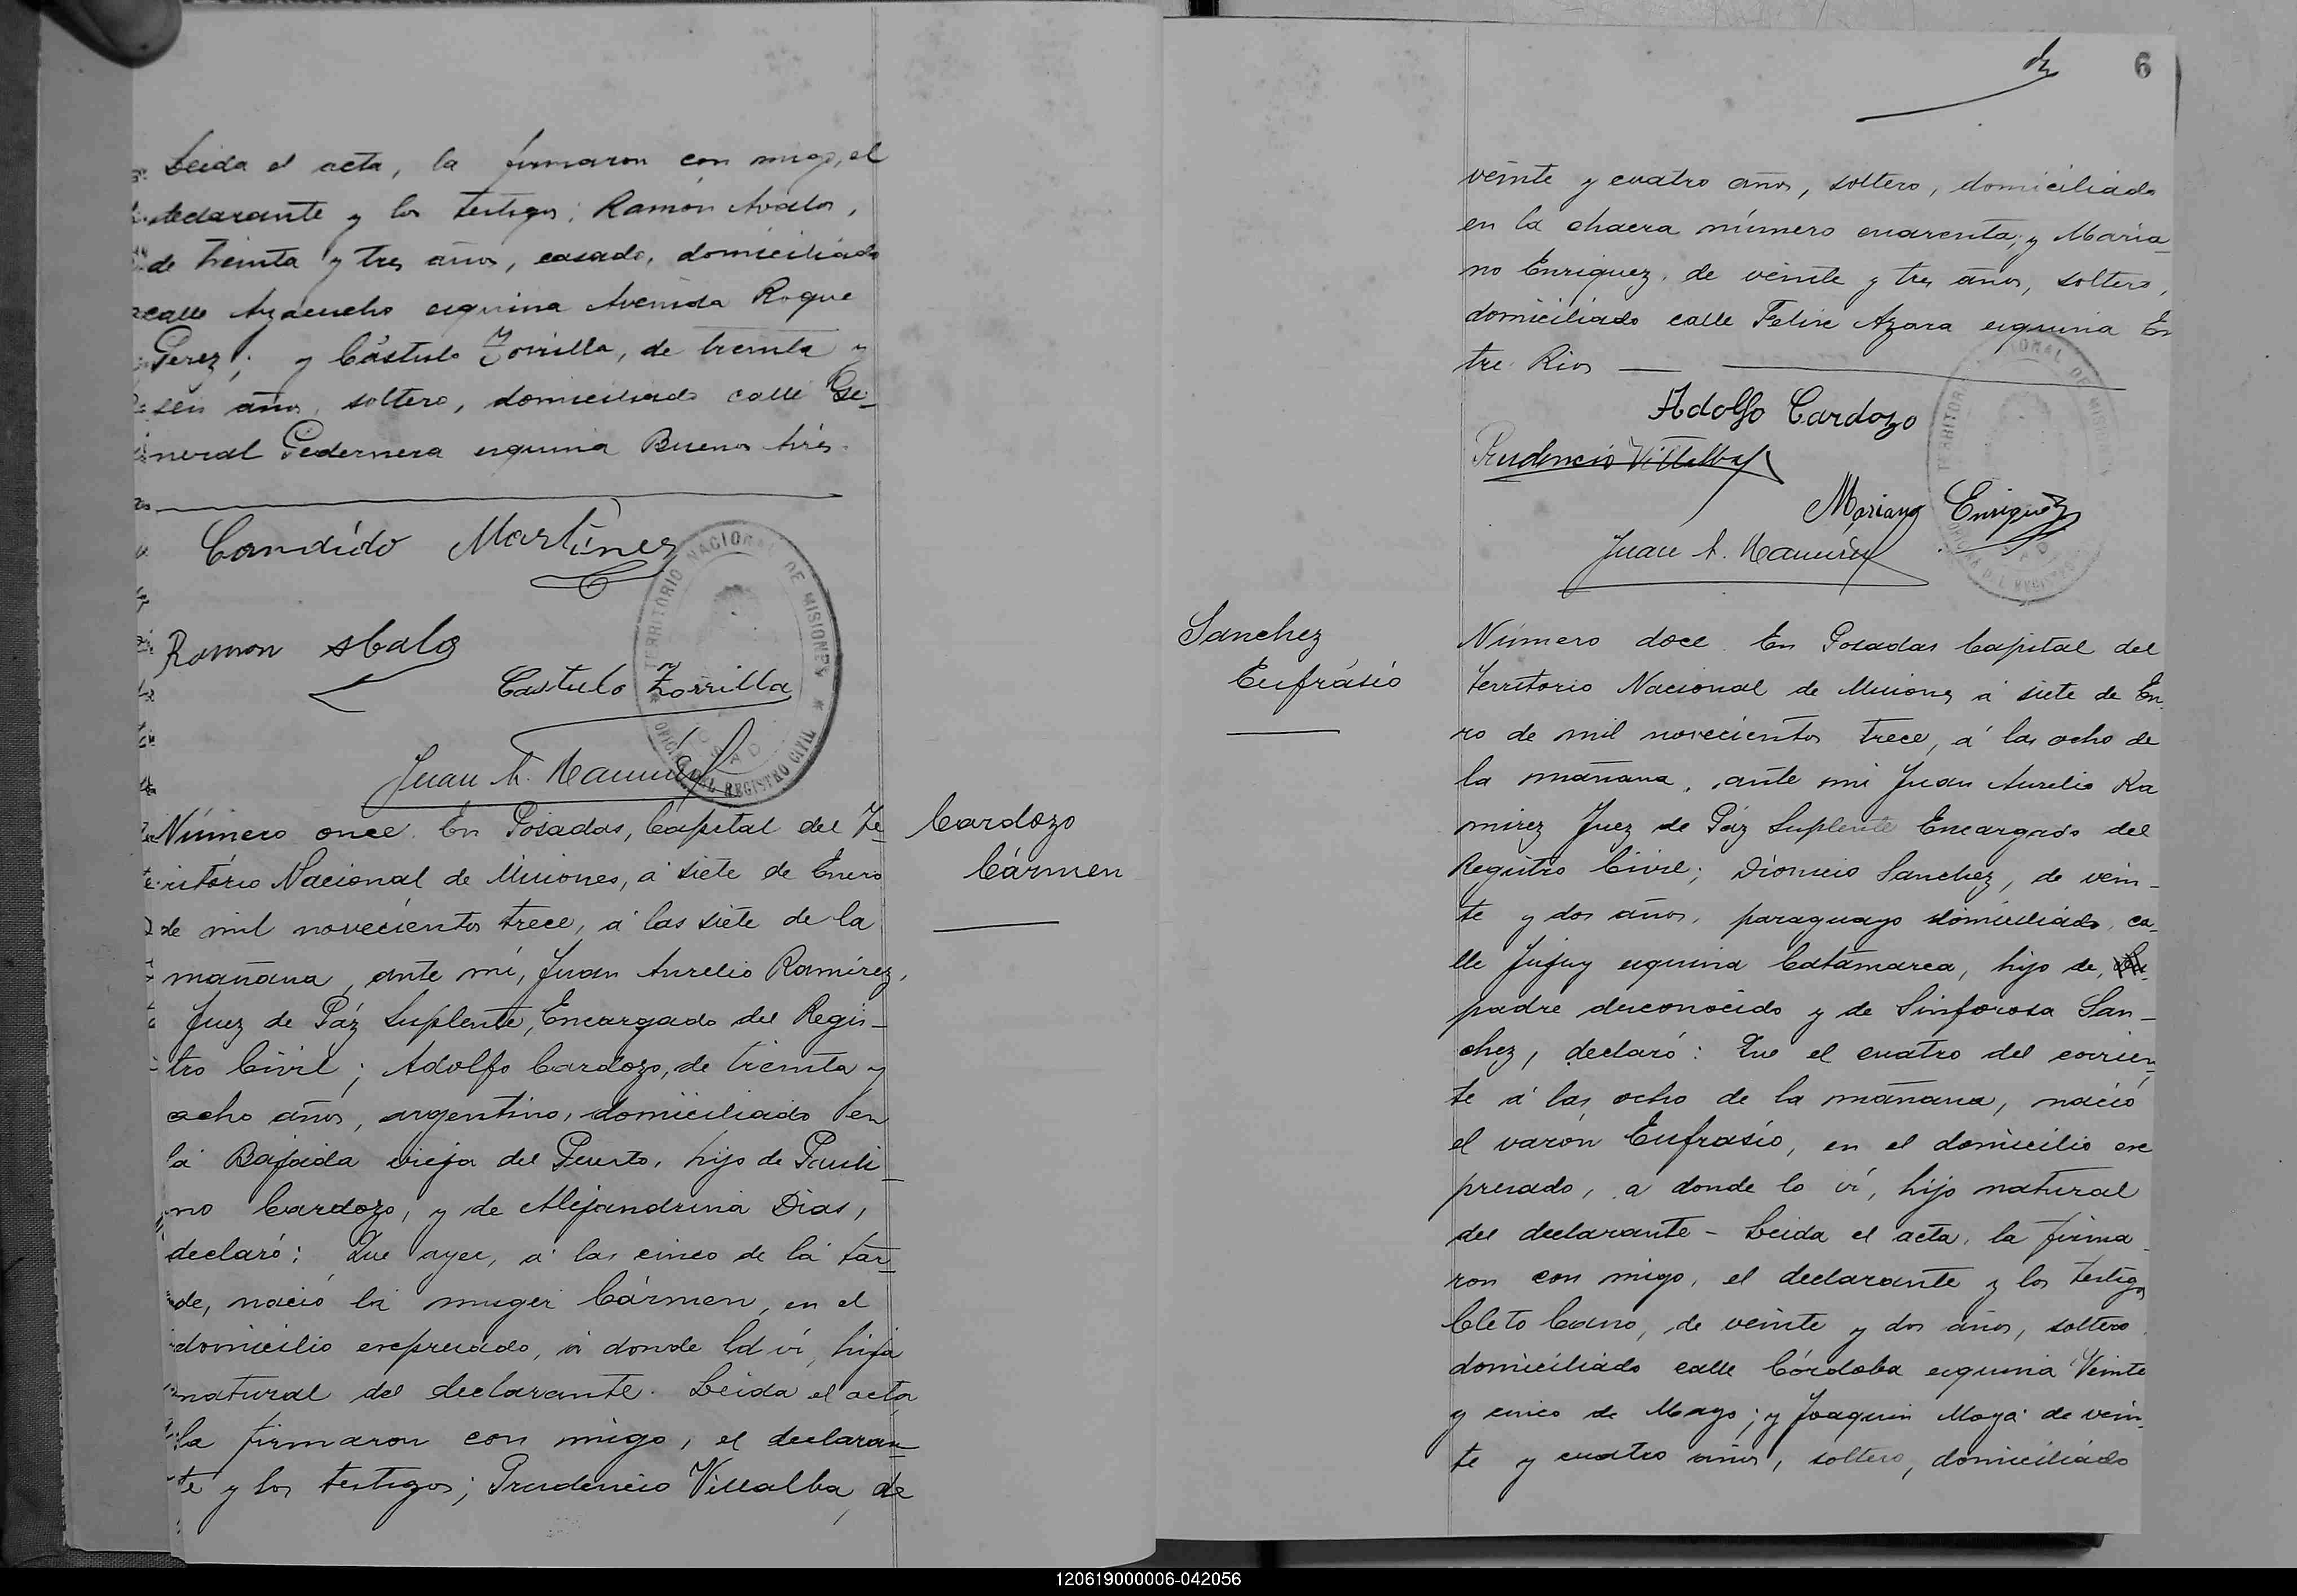 Leida el acta, la firmaron con migo, el
declarante y los testigos; Ramón Avalos,
de treinta y tres años, casado, domiciliado
calle Ayacucho esquina Avenida Roque
Perez; y Cástulo Zorrilla, de treinta y
seis años, soltero, domiciliado calle Ge-
neral Pedernera esquina Buenos Aires.
Candido Martinez
Ramon Abalo
Castulo Zorrilla
TERRITORIO NACIONAL DE MISIONES
OFICINA DEL REGISTRO CIVIL
Juan A. Ramirez
Número once. En Posadas, Capital del Te-
Cardozo
Cármen
rritório Nacional de Misiones, á siete de Enero
de mil novecientos trece, á las siete de la
mañana, ante mí, Juan Aurelio Ramírez,
Juez de Páz Suplente, Encargado del Regis-
tro Civil; Adolfo Cardozo, de treinta y
ocho años, argentino, domiciliado en
la Bajada vieja del Puerto, hijo de Pauli-
no Cardozo, y de Alejandrina Dias,
declaró: Que ayer, á las cinco de la tar-
de, nació la muger Cármen, en el
domicilio expresado, á donde la ví, hija
natural del declarante. Leida el acta
la firmaron con migo, el declaran-
te y los testigos; Prudencio Villalba, de
6
veinte y cuatro años, soltero, domiciliado
en la chacra número cuarenta; y Maria-
no Enriquez, de veinte y tres años, soltero,
domiciliado calle Felix Azara esquina En
tre Rios
Adolfo Cardozo
Prudencio Villalba
Mariano Enriquez
Juan A. Ramirez
Sanchez
Eufrásio
Número doce. En Posadas Capital del
Territorio Nacional de Misiones á siete de En
ro de mil novecientos trece, á las ocho de
la mañana, ante mi Juan Aurelio Ra
mirez Juez de Páz Suplente Encargado del
Registro Civil; Dionicio Sanchez, de vein-
te y dos años, paraguayo domiciliado, ca-
lle Jujuy esquina Catamarca, hijo de,
padre desconocido y de Sinforosa San-
chez, declaró: Que el cuatro del corrien-
te á las ocho de la mañana, nació
el varón Eufrasio, en el domicilio ex
presado, a donde lo ví, hijo natural
del declarante - Leida el acta, la firma-
ron con migo, el declarante y los testigos
Cleto Cano, de veinte y dos años, soltero,
domiciliado calle Córdoba esquina Veinte
y cinco de Mayo; y Joaquin Moya de vein-
te y cuatro años, soltero, domiciliado
120619000006-042056